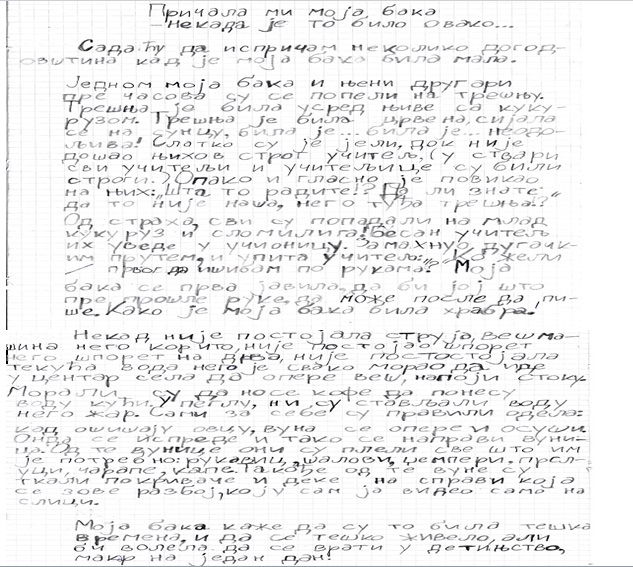 Причала ми моја бака
-некада је то било овако...
Сада ћу да испричам неколико догод-
овштина кад је моја бака била мала.
Једном моја бака и њени другари
пре часова су се попели на трешњу.
Трешња је била усред њиве са куку-
рузом. Трешња је била црвена, сијала
се на сунцу, била је... била је... неодо-
љива! Слатко су је јели, док није
дошао њихов строг учитељ, (у ствари
сви учитељи и учитељице су били
строги.) Опако и гласно је повикао
на њих: „Шта то радите!? Да ли знате
да то није наша, него туђа трешња!?"
Од страха, сви су попадали на млад
кукуруз и сломили га! Бесан учитељ
их уведе у учионицу. Замахну дугачк-
им прутем, и упита учитељ: „Ко жели
првог да ишибам по рукама?" Моја
бака се прва јавила, да би јој што
пре прошле руке, да може после да пи-
ше. Како је моја бака била храбра!
Некад није постојала струја, веш ма-
шина него корито, није постојао шпорет
него шпорет на дрва, није постостојала
текућа вода него је свако морао да иде
у центар села да опере веш, напоји стоку.
Морали су да носе кофе да понесу
воду кући. У пеглу, ни су стављали воду
него жар. Сами за себе су правили одела:
кад ошишају овцу, вуна се опере и осуши.
Онда се испреде и тако се направи вуни-
ца. Од те вунице они су плели све што им
је потребно: рукавице, шалови, џемпери, прсл-
уци, чарапе, капе. Такође од те вуне су
ткали покриваче и деке на справи која
се зове разбој, коју сам ја видео само на
слици.
Моја бака каже да су то била тешка
времена, и да се тешко живело, али
би волела да се врати у детињство,
макар на један дан!